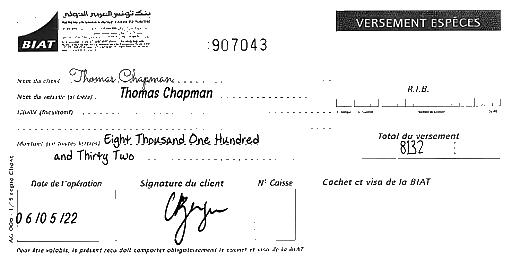 بنك تونس العربي الدولي
BIAT
907043
VERSEMENT ESPÈCES
Nom du client Thomas Chapman
Nom du verseur (si tiers) Thomas Chapman
R.I.B.
Libellé (facultatif)
Montant (en toutes lettres) Eight Thousand One Hundred
and Thirty Two
Total du versement
8132
Date de l'opération
Signature du client
N° Caisse
Cachet et visa de la BIAT
06/05/22
Pour être valable, le présent reçu doit comporter obligatoirement le cachet et visa de la BIAT